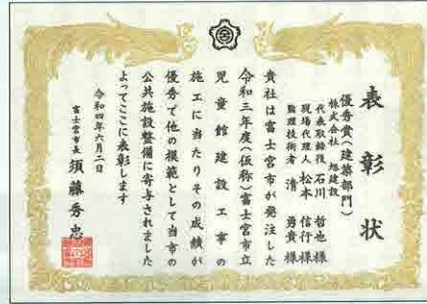 表彰状
優秀賞(建築部門)
株式会社 旭建設
代表取締役 石川 哲也 様
現場代理人 松本 信行 様
監理技術者 清 勇貴 様
貴社は富士宮市が発注した
令和三年度(仮称)富士宮市立
児童館建設工事の
施工に当たりその成績が
優秀で他の模範として当市の
公共施設整備に寄与されました
よってここに表彰します
令和四年六月二日
富士宮市長 須藤秀忠